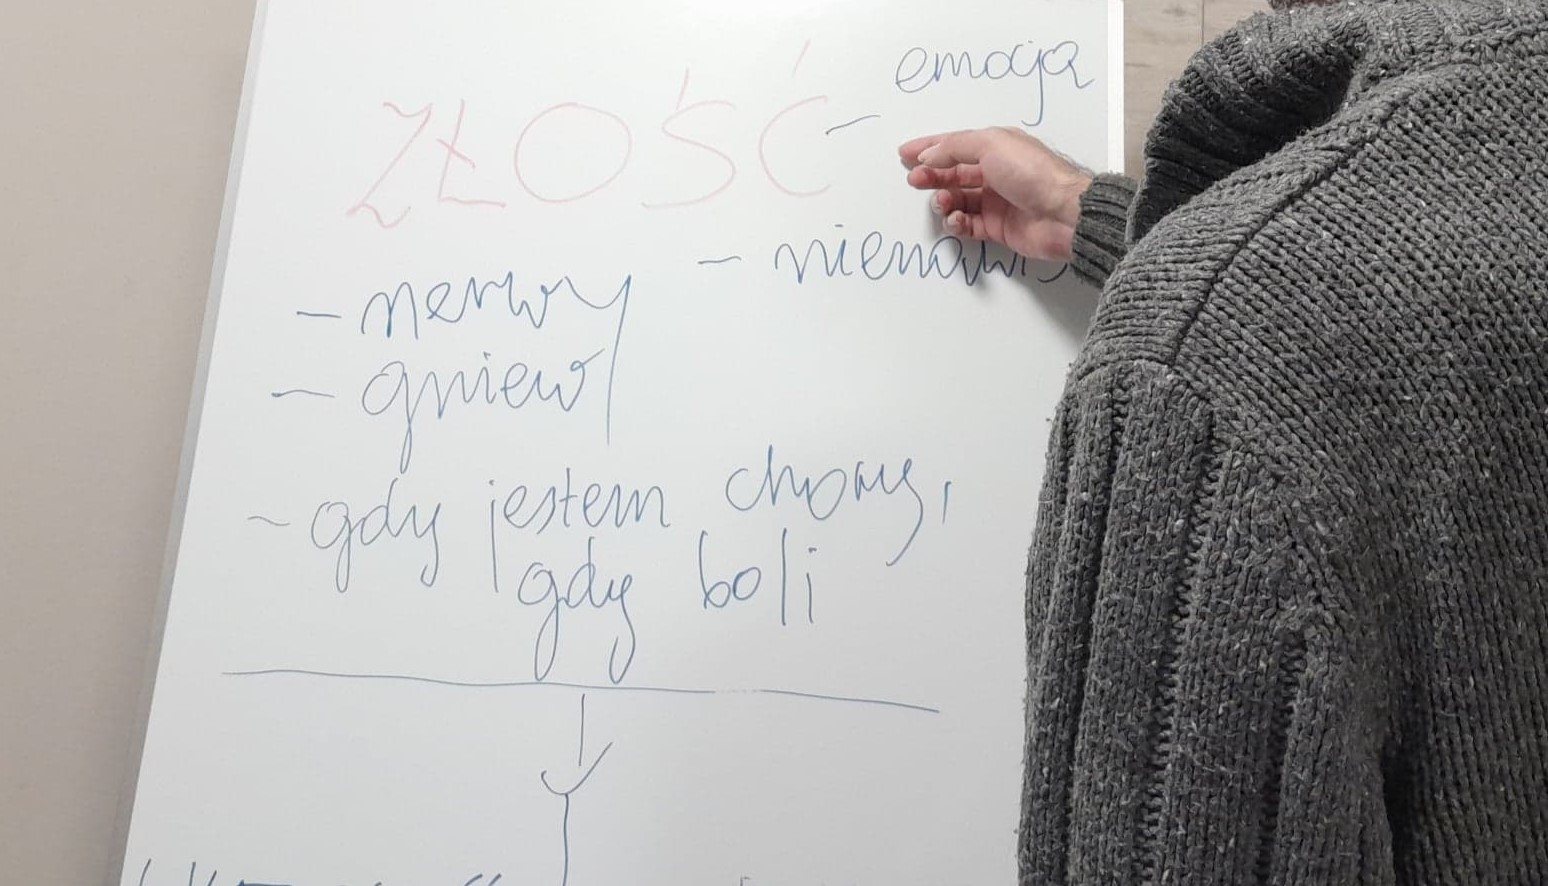 ZŁOŚĆ - emocja
- nienawiś
- nerwy
- gniew
- gdy jestem chory,
gdy boli